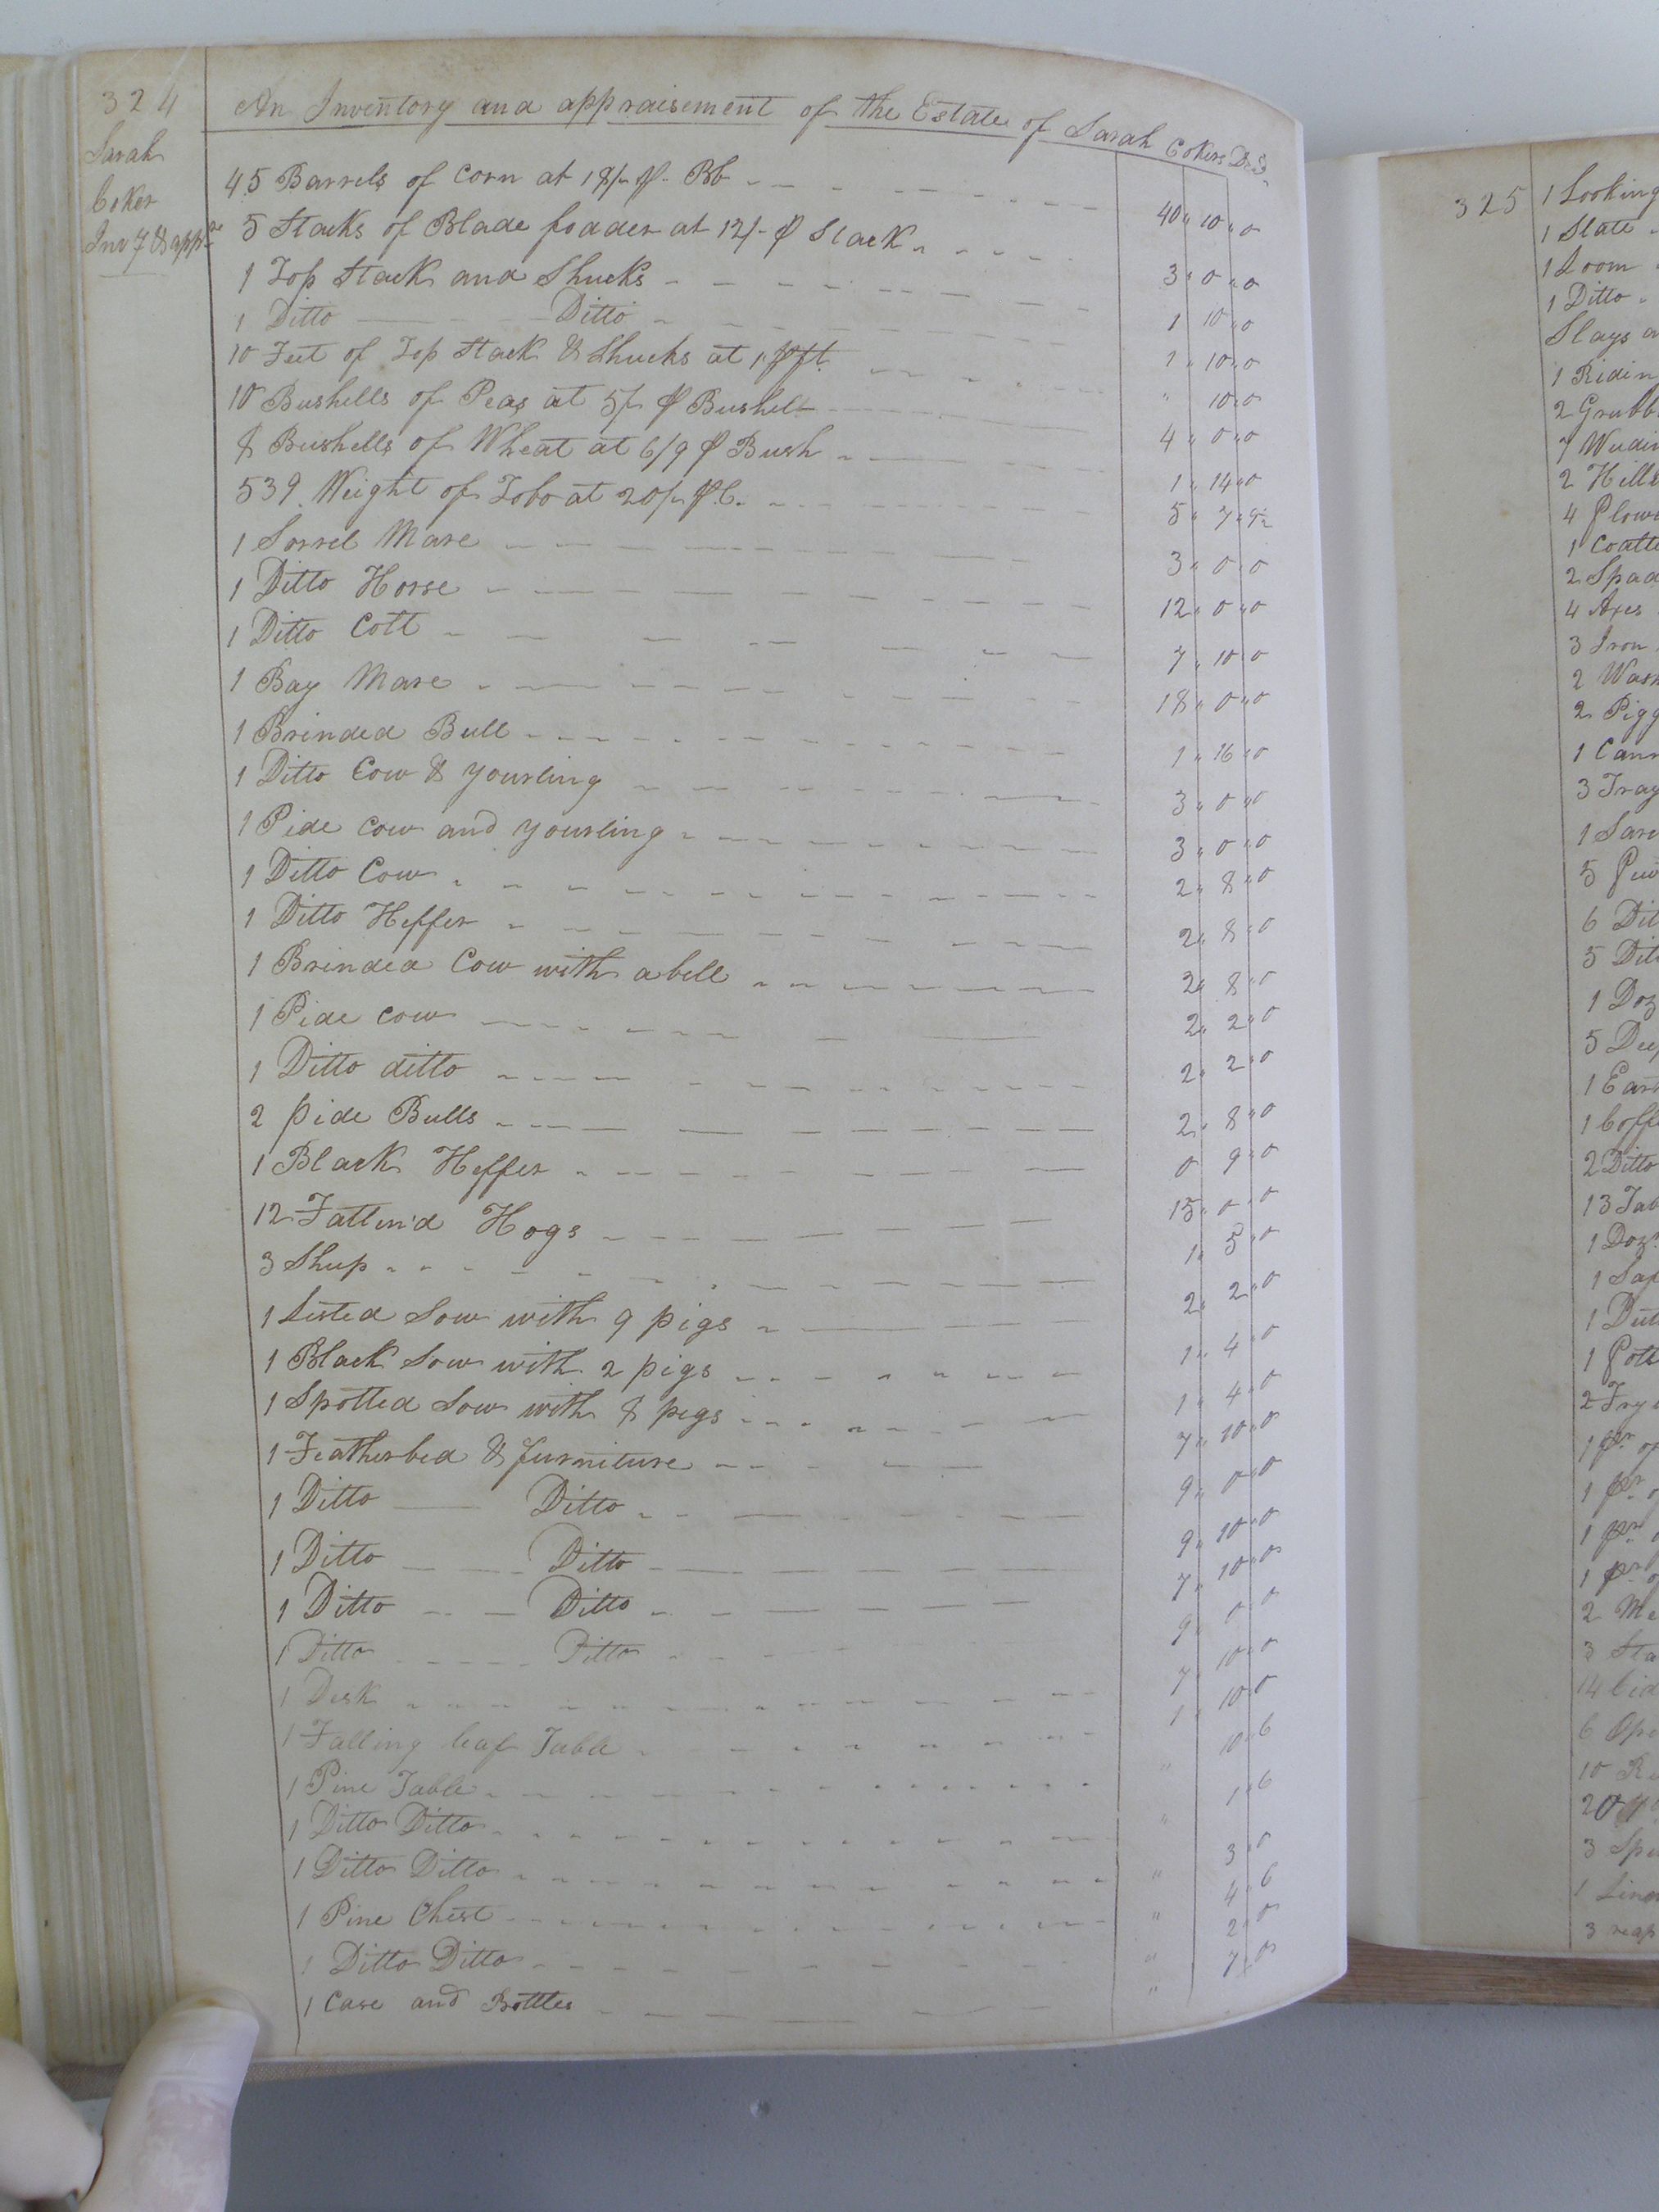 324
Sarah
Coker
Invy & appmt
An Inventory and appraisement of the Estate of Sarah Cokers
45 Barrels of Corn at 18/- ⅌ Bb 40 " 10 " 0
5 Stacks of Blade fodder at 12/- ⅌ Stack 3 " 0 " 0
1 Top Stack and Shucks 1 10 " 0
1 Ditto Ditto 1 " 10 " 0
10 Feet of Top Stack & Shucks at 1/ ⅌ ft " 10 " 0
10 Bushells of Peas at 5/- ⅌ Bushell 4 " 0 " 0
8 Bushells of Wheat at 6/9 ⅌ Bush 1 " 14 " 0
539 Weight of Tobo at 20/- ⅌ C. 5 " 7 " 9½
1 Sorrel Mare 3 " 0 " 0
1 Ditto Horse 12 " 0 " 0
1 Ditto Colt 7 " 10 " 0
1 Bay Mare 18 " 0 " 0
1 Brinded Bull 1 " 16 " 0
1 Ditto Cow & yourling 3 " 0 " 0
1 Pide Cow and yourling 3 " 0 " 0
1 Ditto Cow 2 " 8 " 0
1 Ditto Heffer 2 " 8 " 0
1 Brinded Cow with a bell 2 " 8 " 0
1 Pide cow 2 " 2 " 0
1 Ditto ditto 2 " 2 " 0
2 pide Bulls 2 " 8 " 0
1 Black Heffer 0 9 " 0
12 Fatten'd Hogs 15 " 0 " 0
3 Sheep 1 " 5 " 0
1 Listed Sow with 9 pigs 2 " 2 " 0
1 Black Sow with 2 pigs 1 " 4 " 0
1 Spotted Sow with 8 pigs 1 " 4 " 0
1 Featherbed & furniture 7 " 10 " 0
1 Ditto Ditto 9 " 0 " 0
1 Ditto Ditto 9 " 10 " 0
1 Ditto Ditto 7 " 10 " 0
1 Ditto Ditto 9 " 0 " 0
1 Desk 7 " 10 " 0
1 Falling leaf Table 1 10 " 0
1 Pine Table " 10 " 6
1 Ditto Ditto " 1 " 6
1 Ditto Ditto " 3 " 0
1 Pine Chest " 4 " 6
1 Ditto Ditto " 2 " 0
1 Case and Bottles " 7 " 0
325
1 Looking
1 Slate
1 Loom
1 Ditto
Slays
1 Ridin
2 Grubb
7 Weedin
2 Hill
4 Plow
1 Coatte
2 Spad
4 Axes
3 Iron
2 Wash
2 Pigg
1 Cann
3 Tray
5 Pew
6 Dit
5 Ditt
1 Doz
5 Dee
1 Eart
1 Coffe
2 Ditto
13 Tab
1 Doz
1 Dut
1 Pott
2 Fry
1 pr of
1 pr o
1 pr o
1 pr o
2 Me
3 Sta
14 Cid
6 Ope